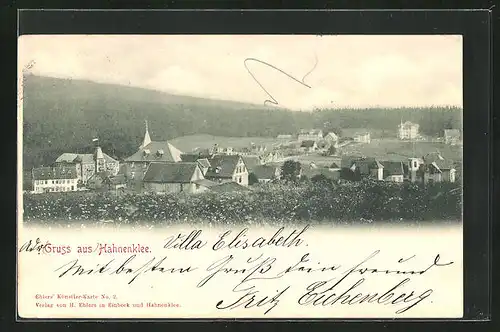 Adr. Gruss aus Hahnenklee. Villa Elisabeth.
Mit bestem Gruß dein Freund
Fritz Eichenberg
Ehlers' Künstler-Karte No. 2.
Verlag von H. Ehlers in Einbeck und Hahnenklee.